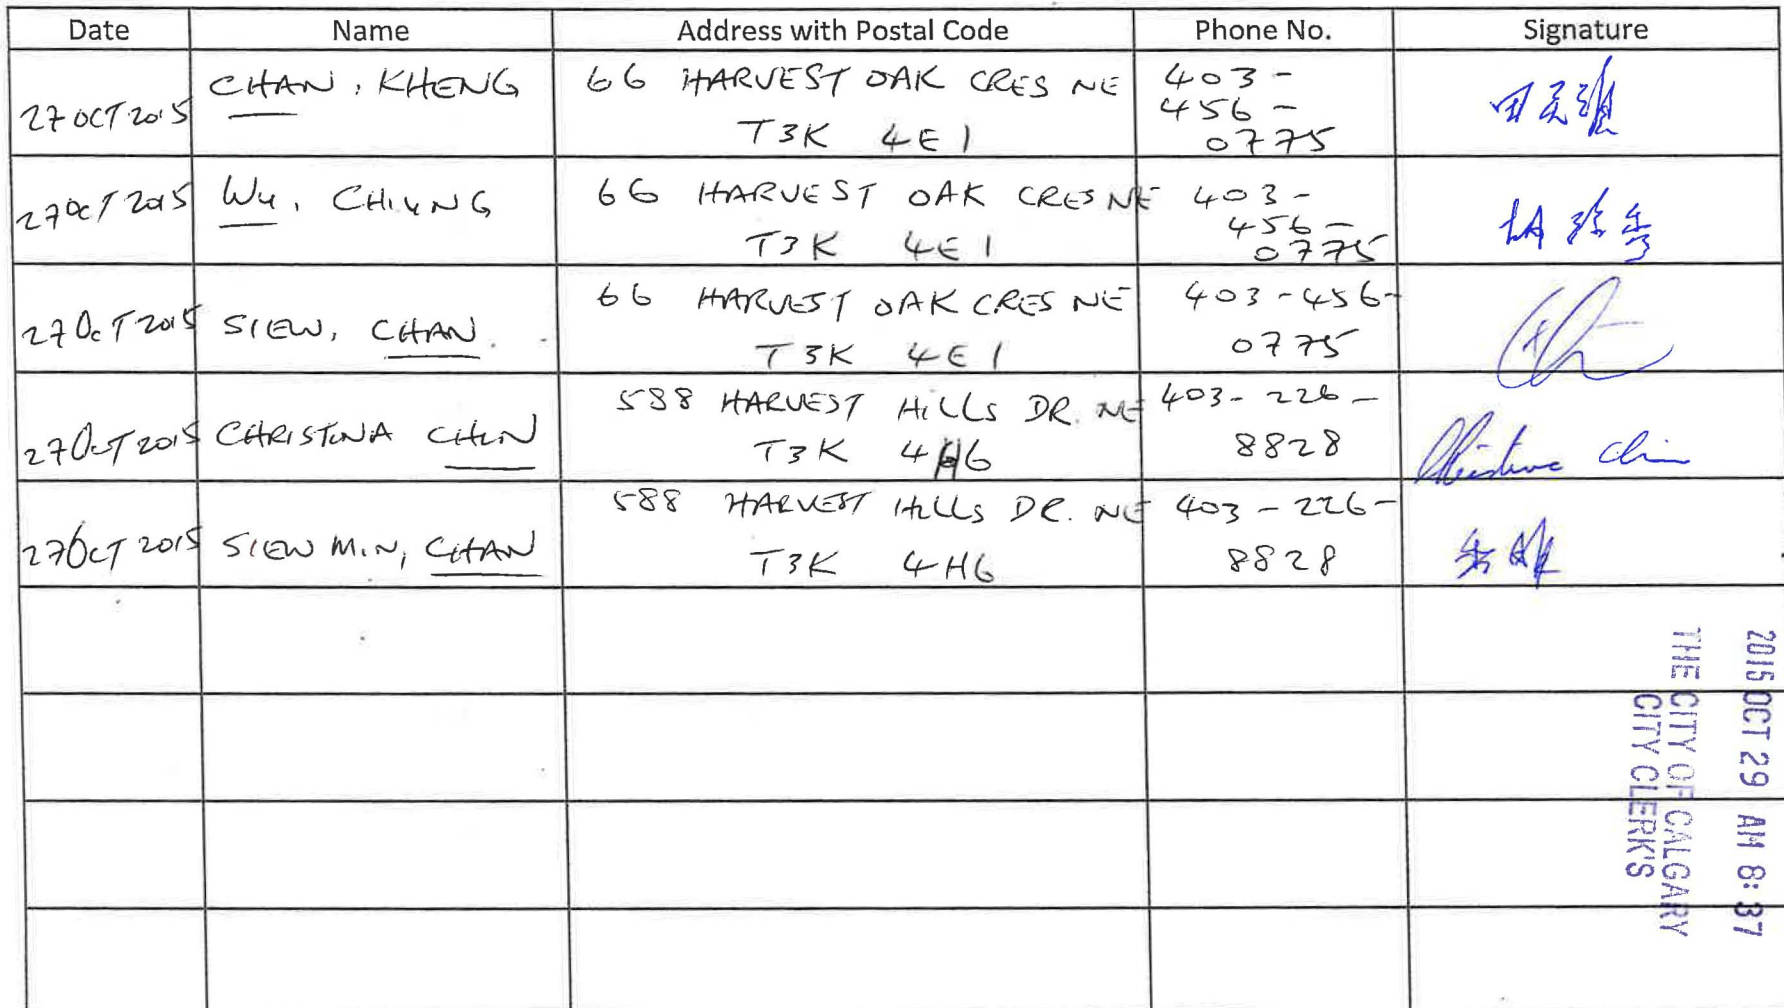 Date Name Address with Postal Code Phone No. Signature
27 OCT 2015 CHAN, KHENG 66 HARVEST OAK CRES NE 403-
456-
T3K 4E1 0775
27 OCT 2015 WU, CHIUNG 66 HARVEST OAK CRES NE 403-
456-
T3K 4E1 0775
27 OCT 2015 SIEW, CHAN 66 HARVEST OAK CRES NE 403-456-
T3K 4E1 0775
27 OCT 2015 CHRISTINA CHIN 588 HARVEST HILLS DR. NE 403-226-
T3K 4H6 8828 Christina Chin
27 OCT 2015 SIEW MIN, CHAN 588 HARVEST HILLS DR. NE 403-226-
T3K 4H6 8828
2015 OCT 29 AM 8:37
THE CITY OF CALGARY
CITY CLERK'S